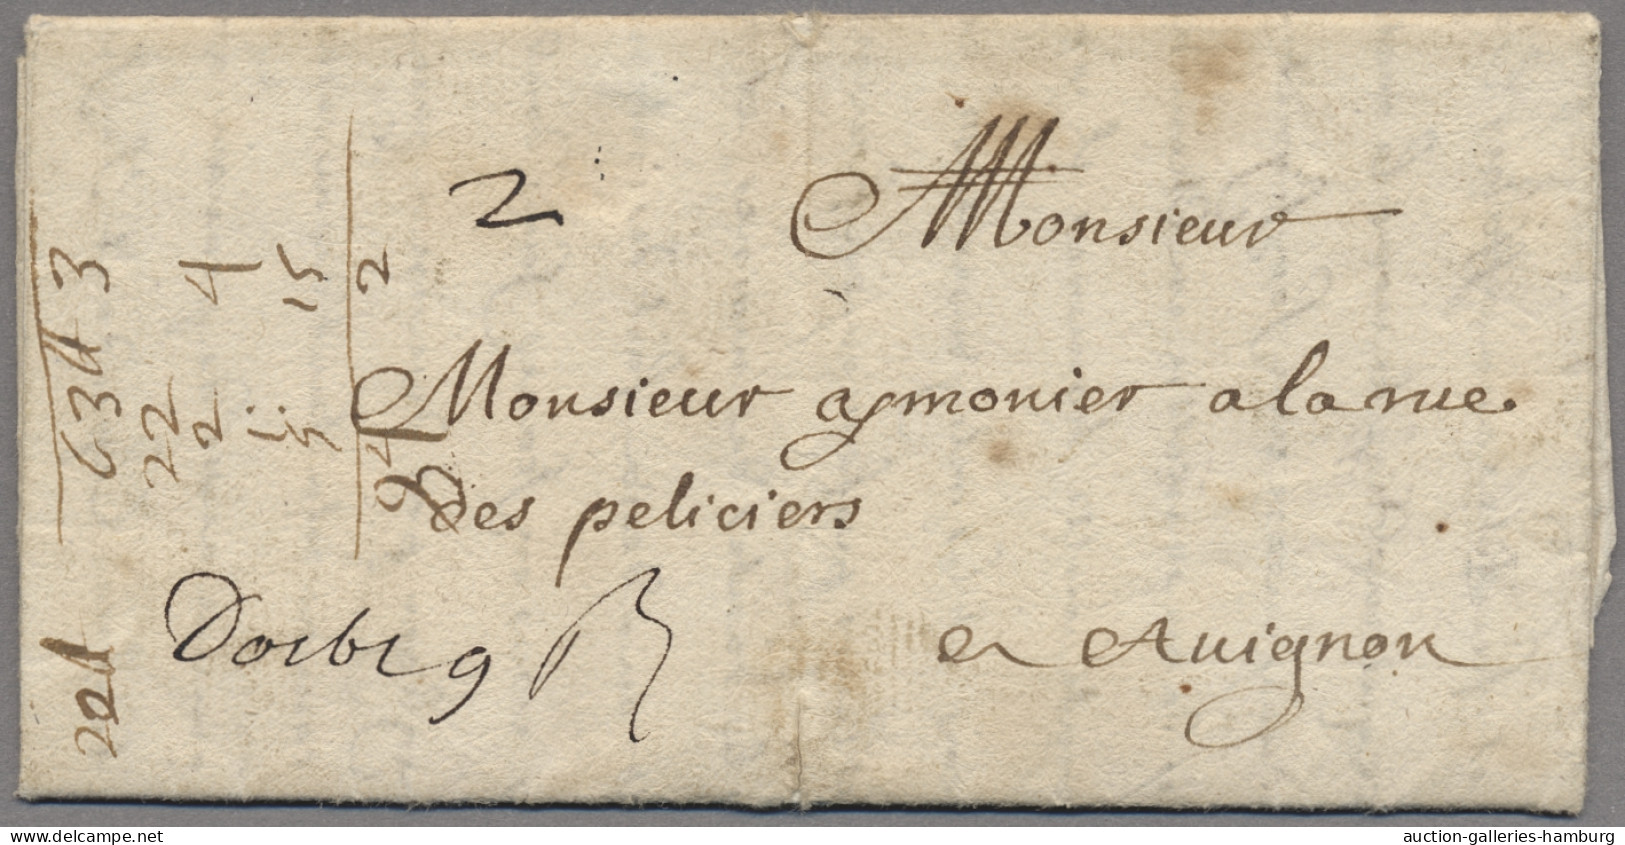 2
Monsieur
Monsieur aymonier a la rue
des peliciers
en Auignon
3
634
22
4
2
15
15
2
94
www.delcampe.net
auction-galleries-hamburg